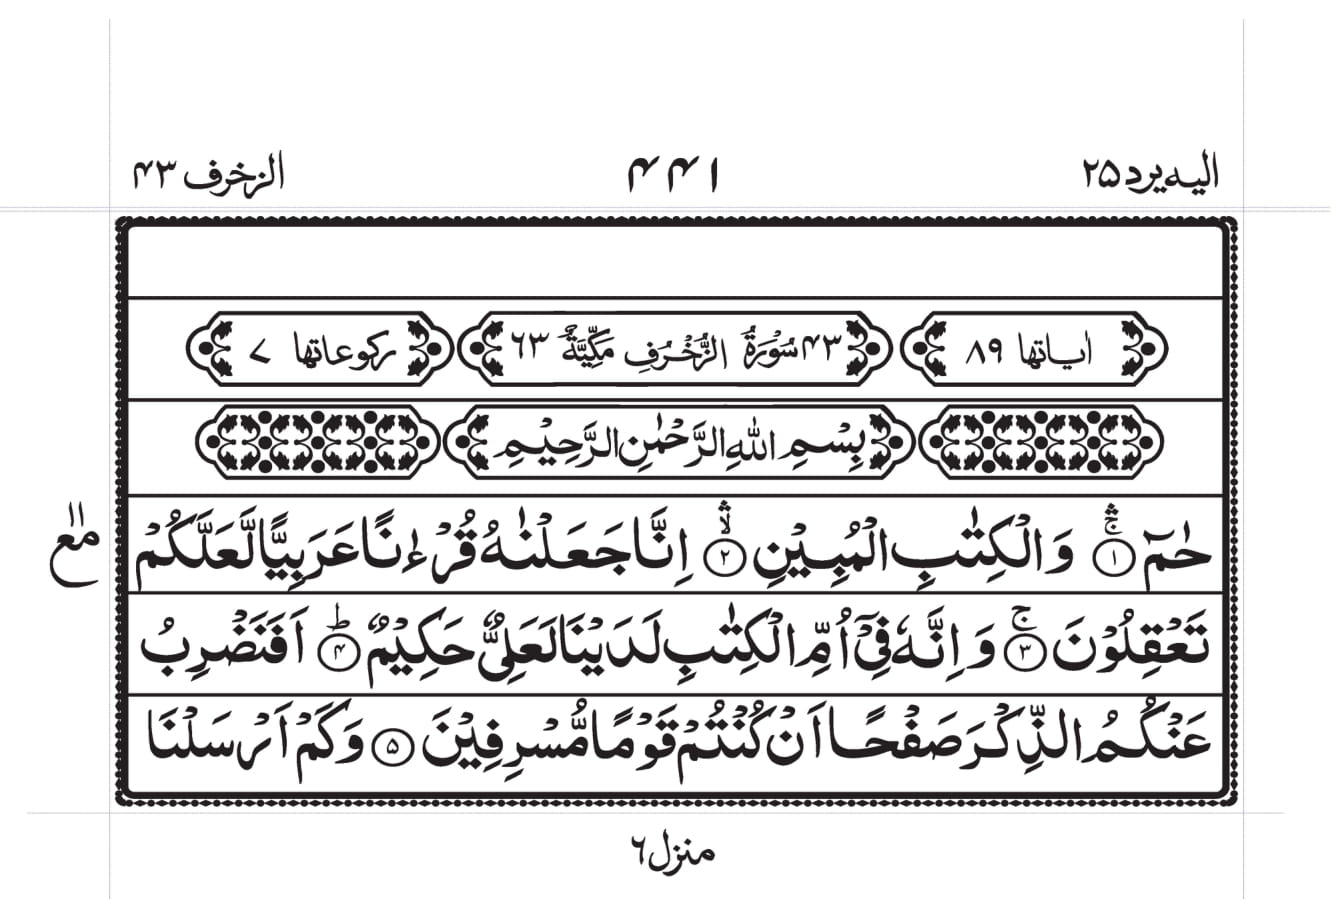 الیه یرد ۲۵ ۴۴۱ الزخرف ۴۳
اٰیاتها ۸۹ ۴۳ سُوْرَةُ الزُّخْرُفِ مَكِّيَّةٌ ۶۳ ركوعاتها ۷
بِسْمِ اللهِ الرَّحْمٰنِ الرَّحِيْمِ
حٰمٓ ۚۛ ﴿۱﴾ وَالْكِتٰبِ الْمُبِيْنِ ۙۛ ﴿۲﴾ اِنَّا جَعَلْنٰهُ قُرْءٰنًا عَرَبِيًّا لَّعَلَّكُمْ
مع
تَعْقِلُوْنَ ۚ ﴿۳﴾ وَاِنَّهٗ فِيْٓ اُمِّ الْكِتٰبِ لَدَيْنَا لَعَلِيٌّ حَكِيْمٌ ؕ ﴿۴﴾ اَفَنَضْرِبُ
عَنْكُمُ الذِّكْرَ صَفْحًا اَنْ كُنْتُمْ قَوْمًا مُّسْرِفِيْنَ ﴿۵﴾ وَكَمْ اَرْسَلْنَا
منزل ۶